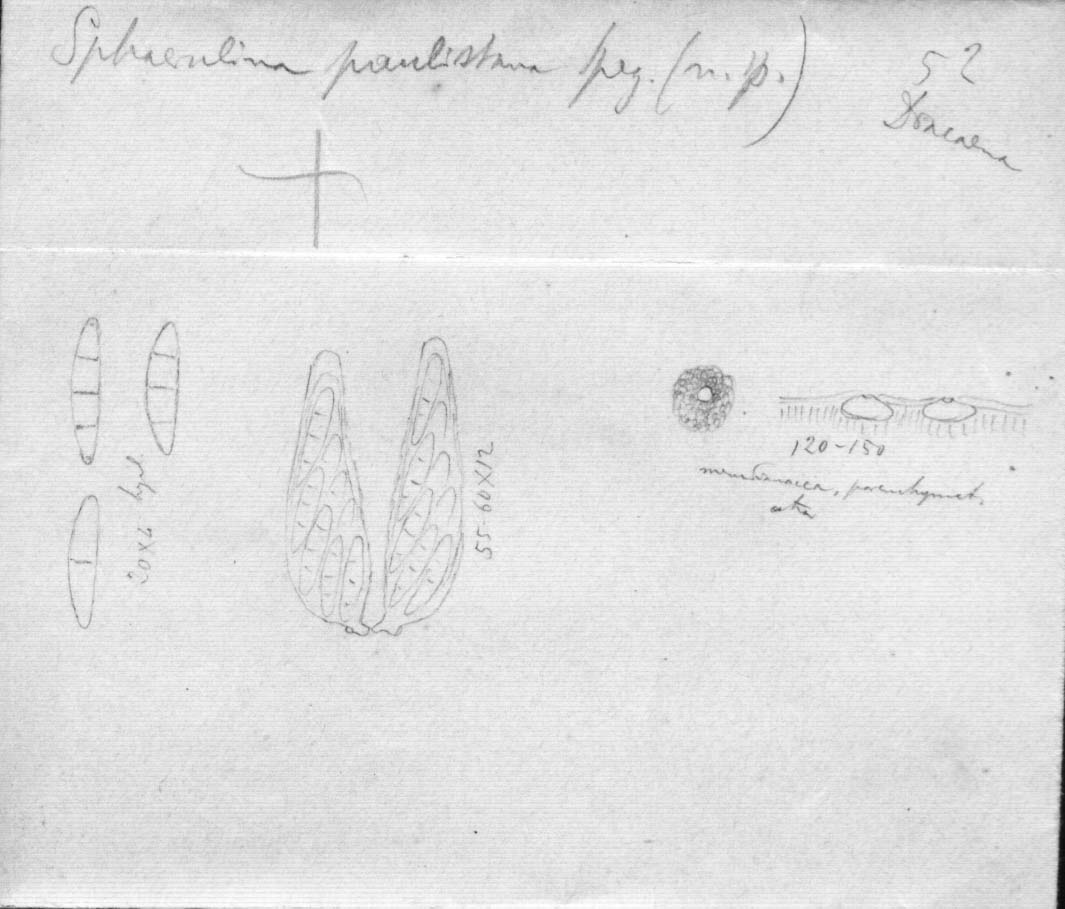 Sphaerulina paulistana Speg. (n. sp.)
52
Dracaena
20X4 hyal.
55-60X12
120-150
membranacea, parenchymat.
atra